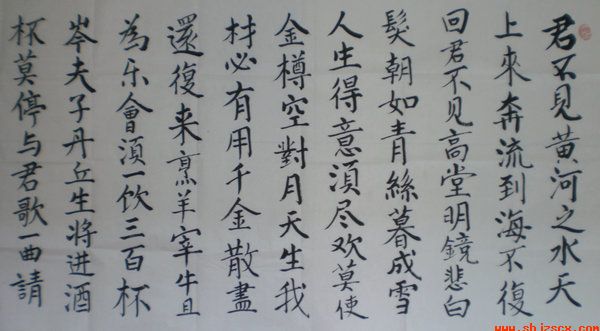 君不見黄河之水天
上來奔流到海不復
回君不见高堂明鏡悲白
髮朝如青絲暮成雪
人生得意湏尽欢莫使
金樽空對月天生我
材必有用千金散盡
還復来烹羊宰牛且
為乐會湏一饮三百杯
岑夫子丹丘生将进酒
杯莫停与君歌一曲請
www.shizscx.com